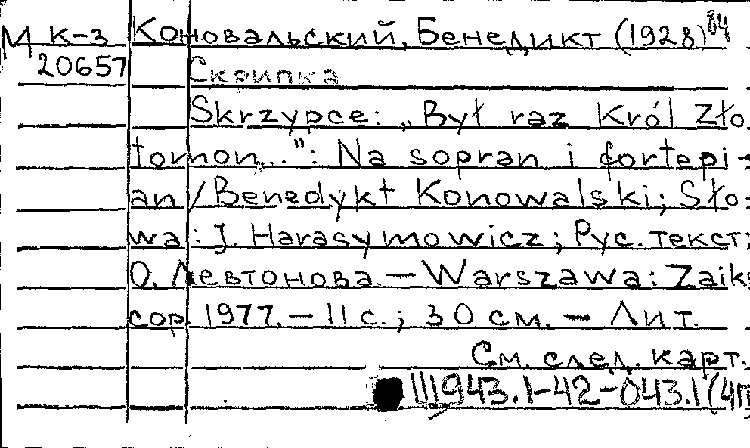 М К-3 Коновальский, Бенедикт (1928)
20657 Скрипка
Skrzypce: „Był raz Król Zło.
tornon...": Na sopran i fortepi-
an / Benedykt Konowalski; Sło:
wa: J. Harasymowicz; Рус. текст:
О. Левтонова — Warszawa: Zaik:
сор. 1977. — 11 с.; 30 см. — Лит.
См. след. карт.